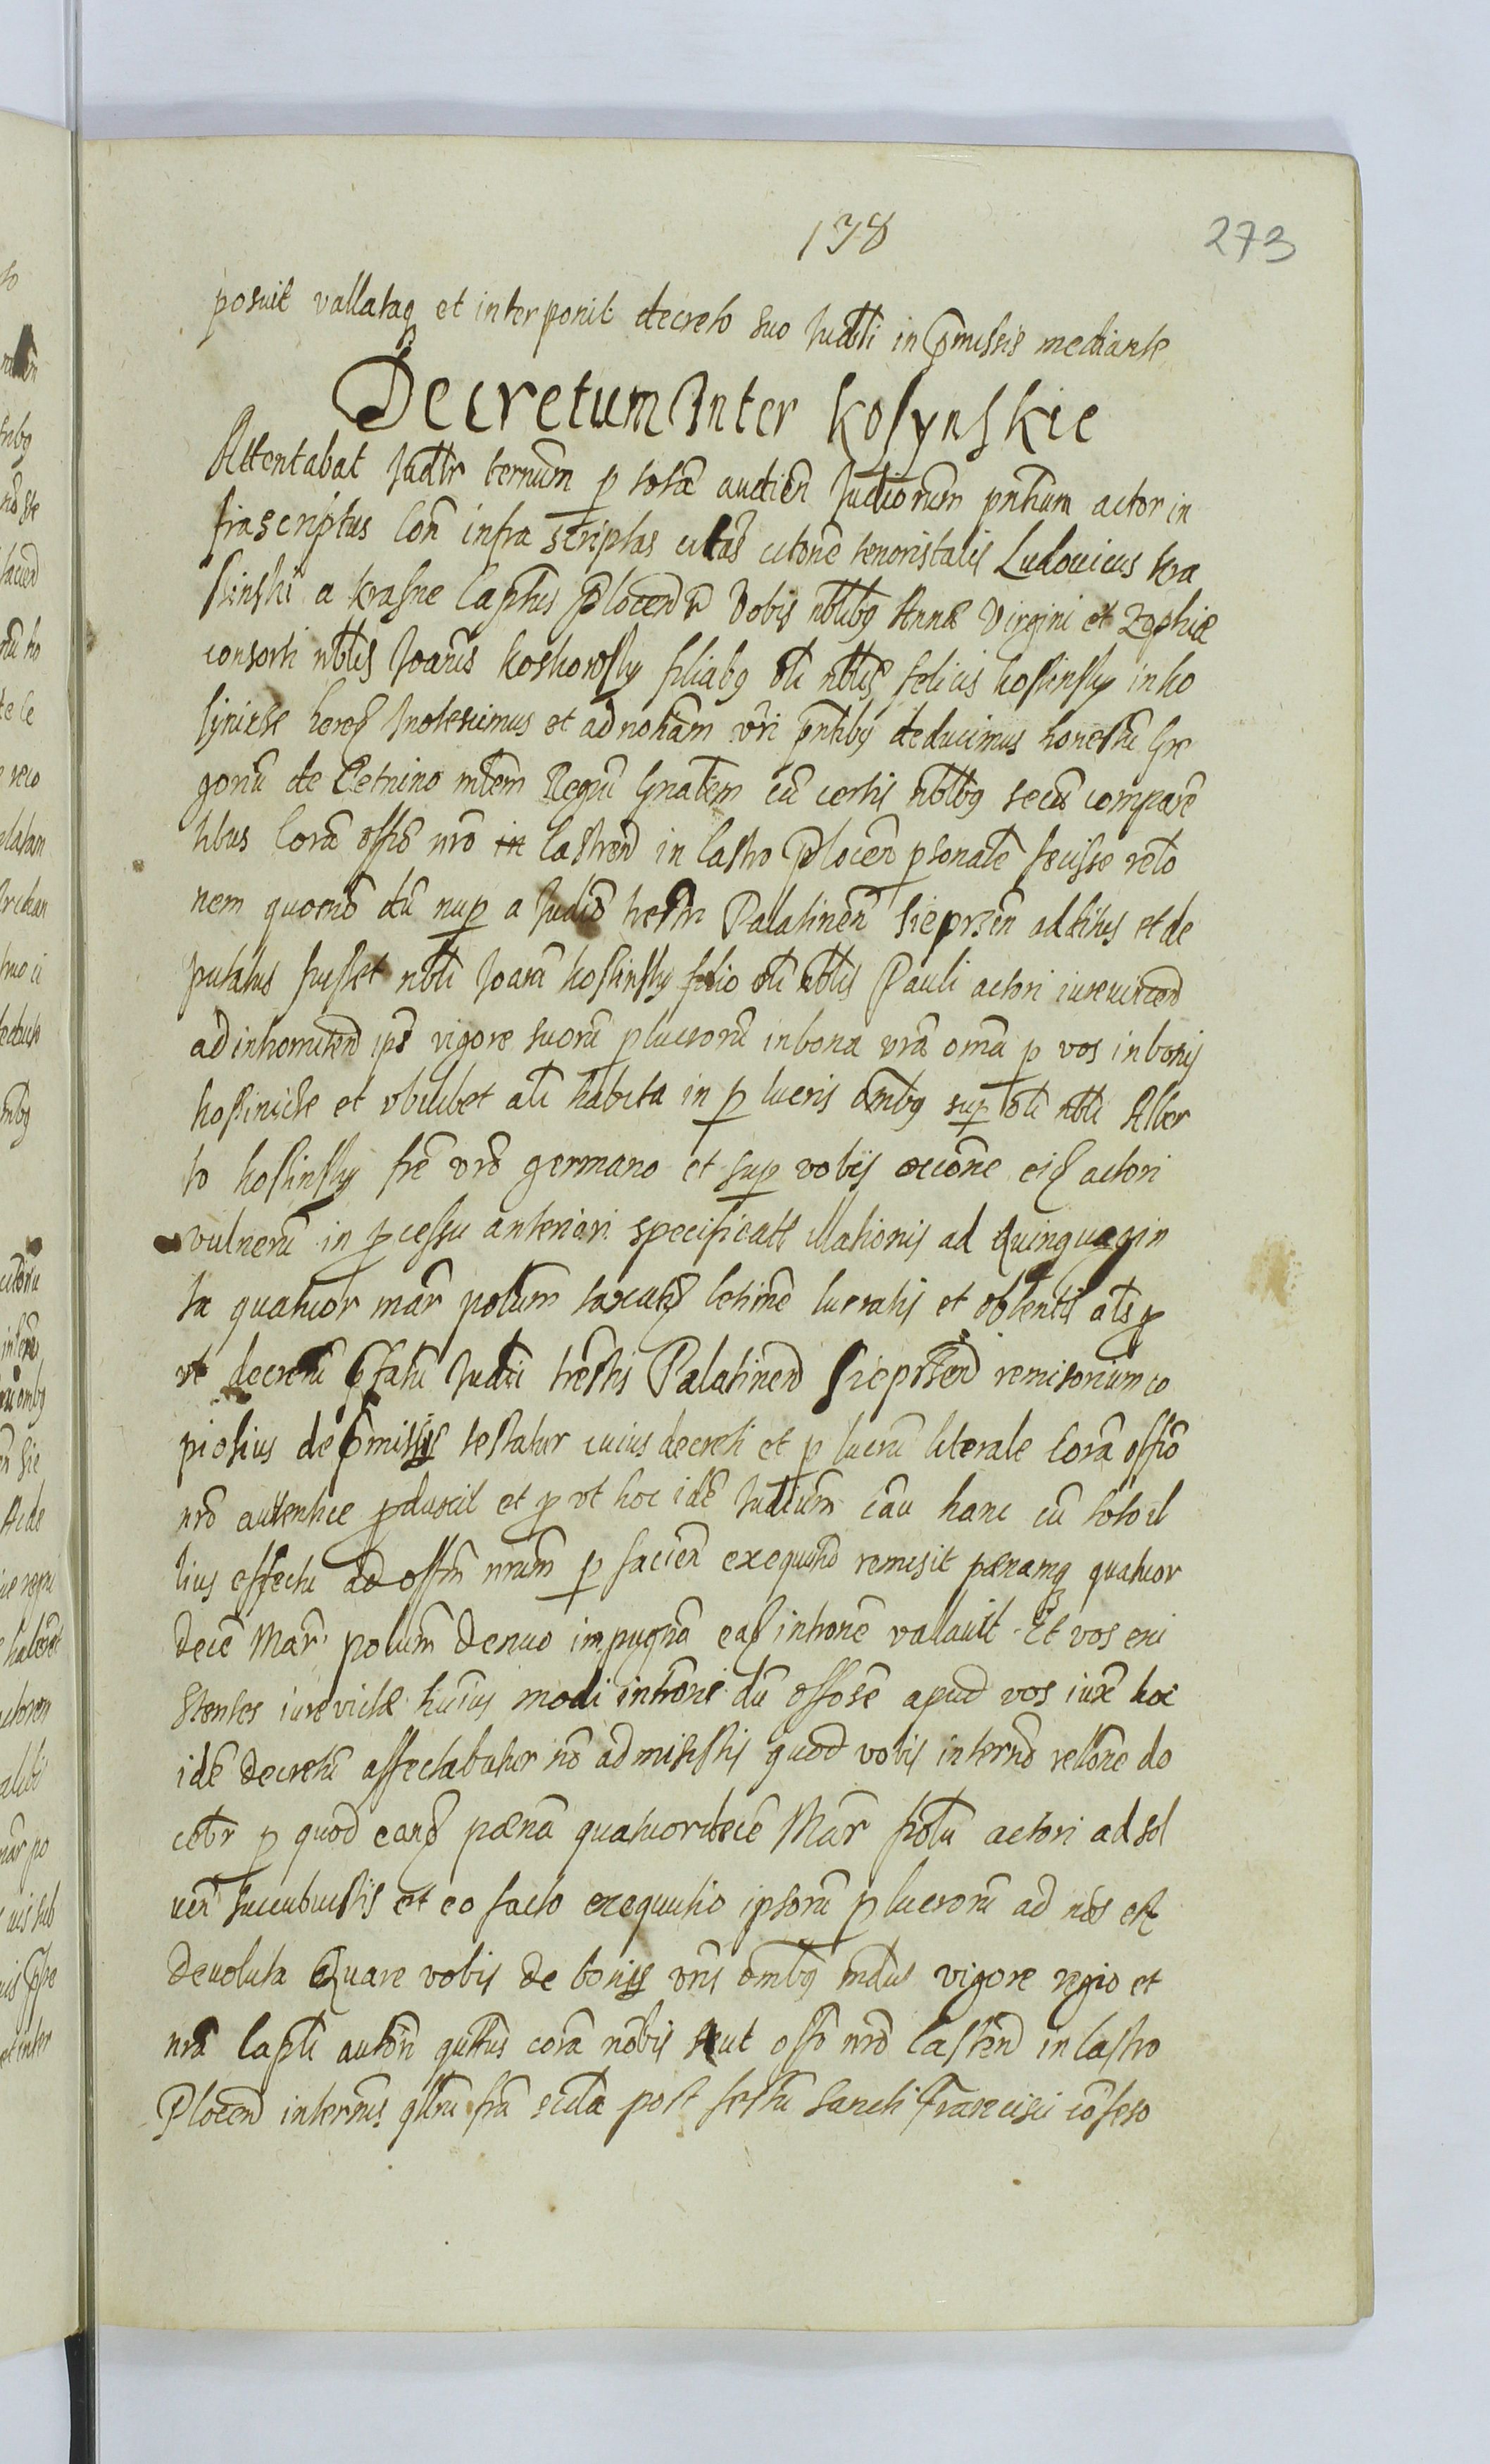 138
273
posuit vallatq et interponit decreto suo Judli in pmissis mediante
Decretum Inter Kosynskie
Attentabat Judlr ternum p totã audien Judiorum pntium actor in
frascriptus Con infra scriptas citãs citone tenoris talis Ludovicus kra
sinski a krasne Captus Plocen Vobis nblibq Annæ Virgini et Zophiæ
consorti nblis Joanis koskowsky filiabq oli nblis felicis kossinsky in ko
synicze hered Inotescimus et ad notiam vri pntibq deducimus honestũ Gre
goriũ de Cetnino mlem Regni Gnalem cũ certis nblbq secũ comparẽ
tibus Corã offo nro Castren in Castro Plocen psonalẽ fecisse relo
nem quomõ dũ nup a Judio trestri Palatinen Sieprcen additus et de
putatus fusset nbli Joañ kossinsky filio oli nblis Pauli actori iurevincend
ad intromitend ips vigore suorũ plucrorũ in bona vrã omã p vos in bonis
kossinicze et ubilibet ali habita in p lucris ombq sup oli nbli Alber
to kossinsky frẽ vro germano et sup vobis occõne eid actori
vulnerũ in pcessu anteriori specificatt illationis ad quinquagin
ta quatuor mar polum taxatis letimẽ lucratis et obtentis als p
ut decretũ pfati Judii trestris Palatinen Sieprsen remisorium co
piosius de pmissis testatur cuius decreti et p lucrũ literale Corã offo
nro autentice pduxit et p ut hoc idẽ Judium cau hanc cũ toto il
lius effectu ad offm nrum p facien exequutio remisit pænamq quatuor
decẽ Mar polum denuo impugna ead intronẽ valavit Et vos exi
stentes iurevictæ huius modi intronẽ dũ offosẽ apud vos iux hoc
idẽ decretũ affectabatur nõ admisistis quod vobis internõ relone do
cebr p quod eand pænã quatuordecẽ Mar polũ actori ad sol
uen succubuistis et eo facto exequutio ipsorũ plucrorũ ad nos est
devoluta Quare vobis de bonis vris ombq mdus vigore regio et
nra Capli autorn qttus corã nobis seut offo nro Castren in Castro
Plocen internis qttũ frã scda post festũ Sancti Francisci cõfeso